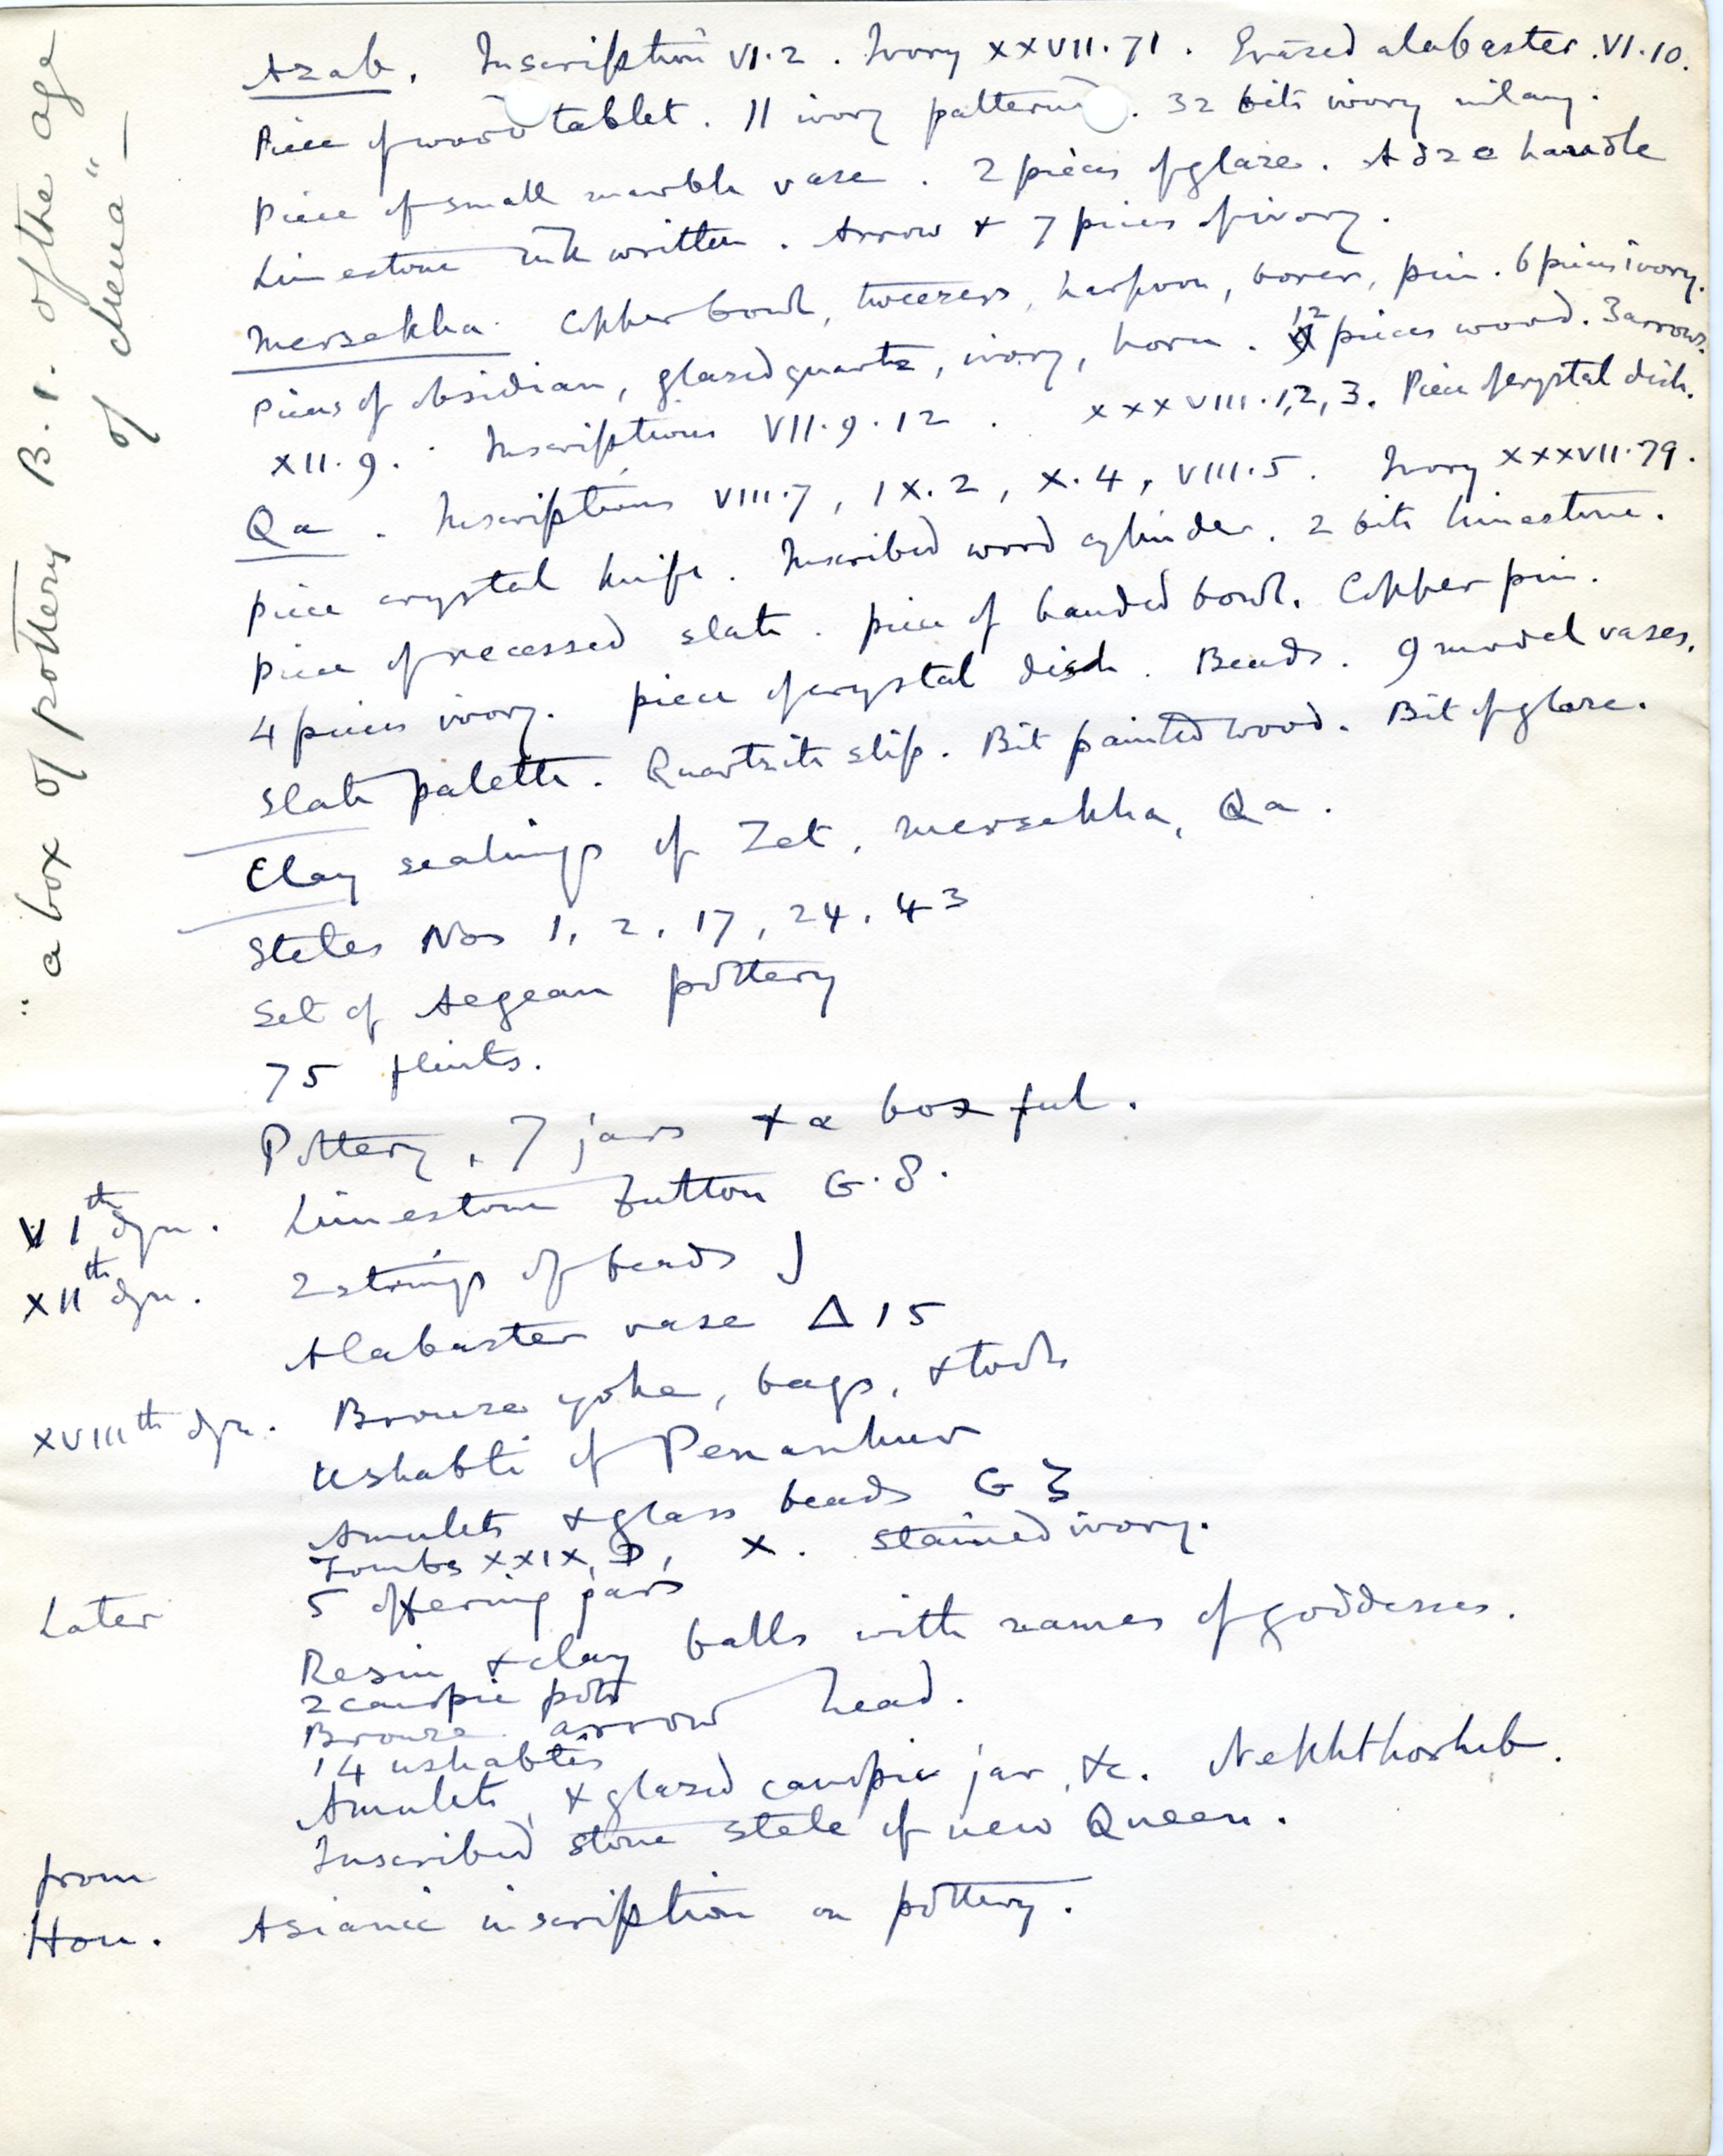 "a box of pottery B.1. of the age
of Mena" —
Azab. Inscription VI.2. Ivory XXVII.71. Erased alabaster. VI.10.
Piece of wood tablet. 11 ivory patterned. 32 bits ivory inlay.
Piece of small marble vase. 2 pieces of glaze. Adze handle
Limestone ink written. Arrow + 7 pieces of ivory.
Mersekha. Copper bowl, tweezers, harpoon, borer, pin. 6 pieces ivory.
Pieces of obsidian, glazed quartz, ivory, horn. 12 pieces wood. 3 arrows.
XII.9. Inscriptions VII.9.12. XXXVIII.1,2,3. Piece of crystal dish.
Qa. Inscriptions VIII.7, IX.2, X.4, VIII.5. Ivory XXXVII.79.
Piece crystal knife. Inscribed wood cylinder. 2 bits limestone.
Piece of recessed slate. piece of banded bowl. Copper pin.
4 pieces ivory. piece of crystal dish. Beads. 9 model vases.
Slate palette. Quartzite slip. Bit painted wood. Bit of glaze.
Clay sealings of Zet, Mersekha, Qa.
Steles Nos 1, 2, 17, 24, 43
Set of Aegean pottery
75 flints.
Pottery, 7 jars + a box ful.
VIth dyn. Limestone button G.8.
XIIth dyn. 2 strings of beads J
Alabaster vase Δ 15
XVIIIth dyn. Bronze yoke, bags, + tools
Ushabti of Penanhur
Amulets + glass beads G 3
Tombs XXIX, D, X. stained ivory.
Later 5 offering jars
Resin + clay balls with names of goddesses.
2 canopic pots
Bronze arrow head.
14 ushabtis
Amulets, + glazed canopic jar, &c. Nekhthorheb.
Inscribed stone stele of new Queen.
from
Hou. Asianic inscription on pottery.